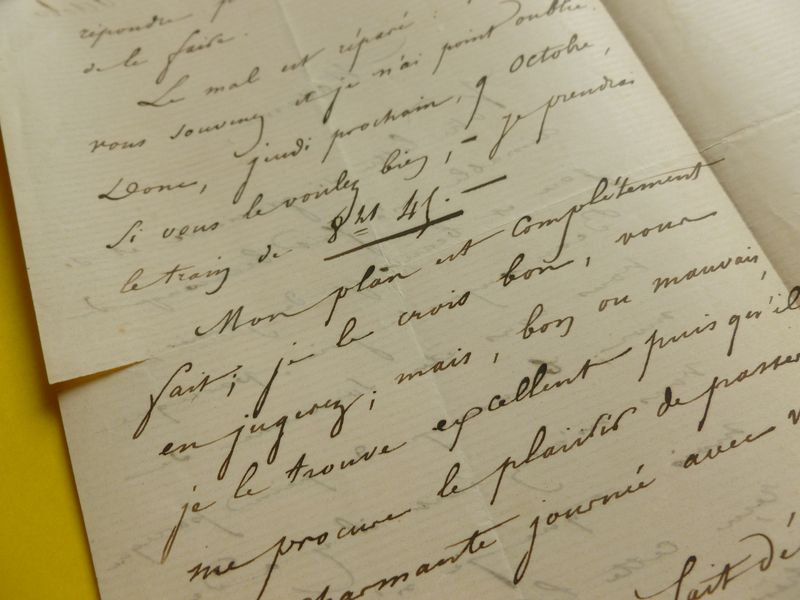 répondre
de le faire.
Le mal est réparé :
vous souvenez et je n'ai point oublié.
Donc, jeudi prochain, 9 Octobre,
Si vous le voulez bien, — je prendrai
le train de 8hs 45. —
Mon plan est complètement
fait ; je le crois bon, vous
en jugerez ; mais, bon ou mauvais,
je le trouve excellent puis qu'il
me procure le plaisir de passer
charmante journée avec
fait dé